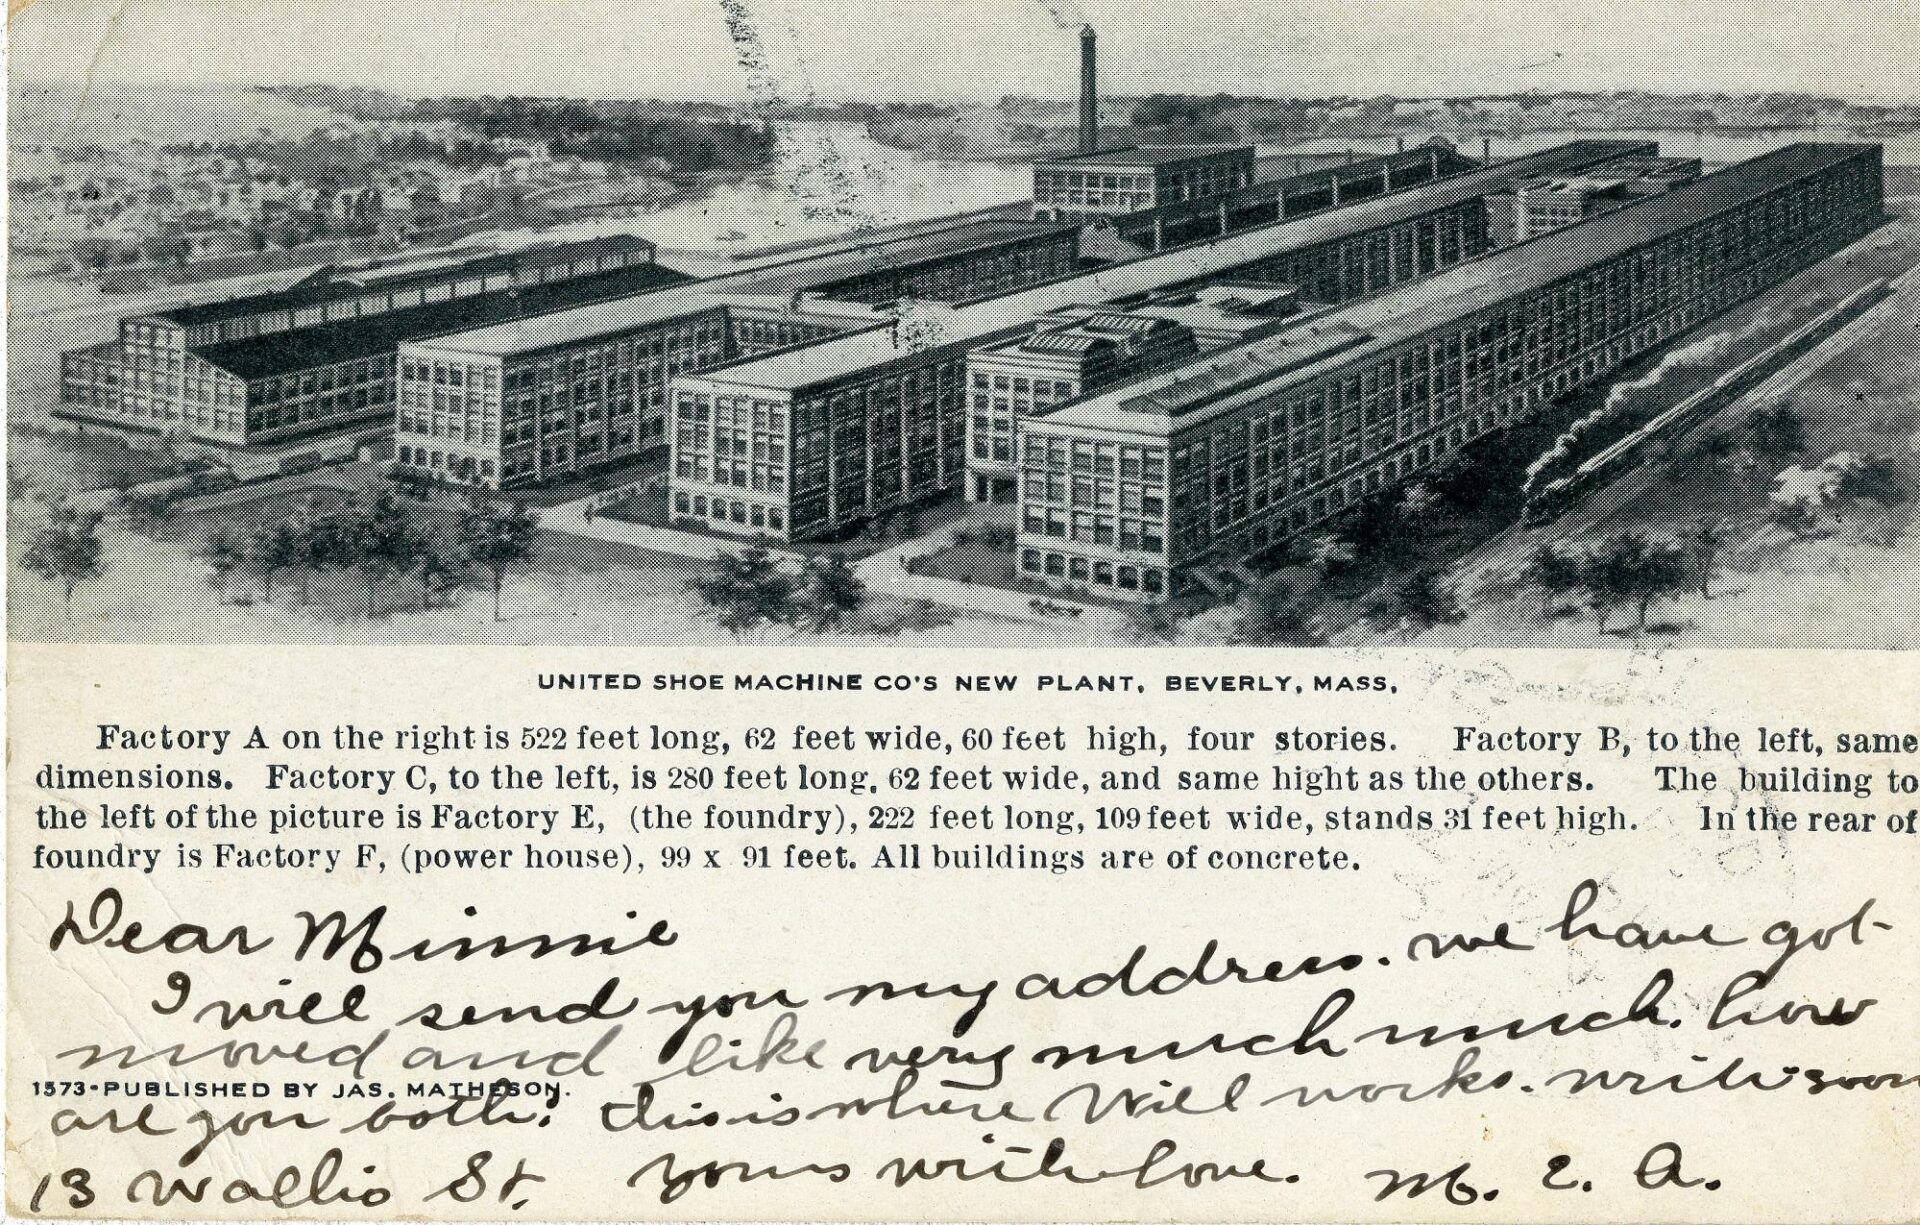 UNITED SHOE MACHINE CO'S NEW PLANT, BEVERLY, MASS,
Factory A on the right is 522 feet long, 62 feet wide, 60 feet high, four stories. Factory B, to the left, same
dimensions. Factory C, to the left, is 280 feet long, 62 feet wide, and same hight as the others. The building to
the left of the picture is Factory E, (the foundry), 222 feet long, 109 feet wide, stands 31 feet high. In the rear of
foundry is Factory F, (power house), 99 x 91 feet. All buildings are of concrete.
Dear Minnie
I will send you my address. we have got
moved and like very much much. how
1573-PUBLISHED BY JAS. MATHESON.
are you both? this is where Will works. write soon
13 Wallis St. yours with love. M. E. A.